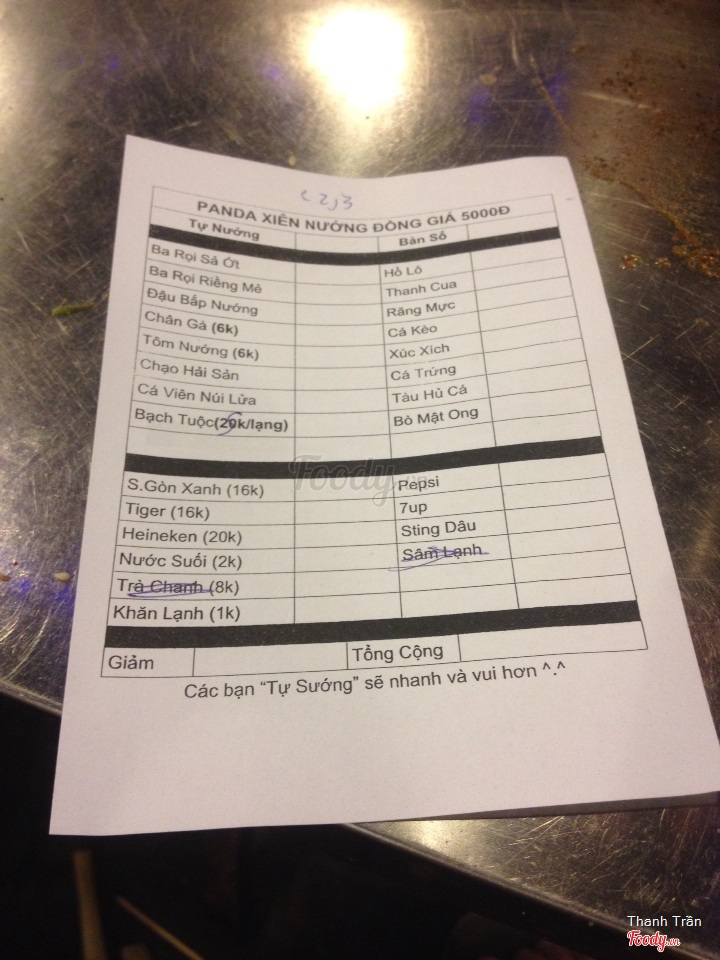 PANDA XIÊN NƯỚNG ĐỒNG GIÁ 5000Đ
Tự Nướng Bàn Số
Ba Rọi Sả Ớt Hồ Lô
Ba Rọi Riềng Mẻ Thanh Cua
Đậu Bắp Nướng Răng Mực
Chân Gà (6k) Cá Kèo
Tôm Nướng (6k) Xúc Xích
Chạo Hải Sản Cá Trứng
Cá Viên Núi Lửa Tàu Hủ Cá
Bạch Tuộc(20k/lạng) Bò Mật Ong
S.Gòn Xanh (16k) Pepsi
Tiger (16k) 7up
Heineken (20k) Sting Dâu
Nước Suối (2k) Sâm Lạnh
Trà Chanh (8k)
Khăn Lạnh (1k)
Giảm Tổng Cộng
Các bạn “Tự Sướng” sẽ nhanh và vui hơn ^.^
Foody.vn
Thanh Trần
Foody.vn